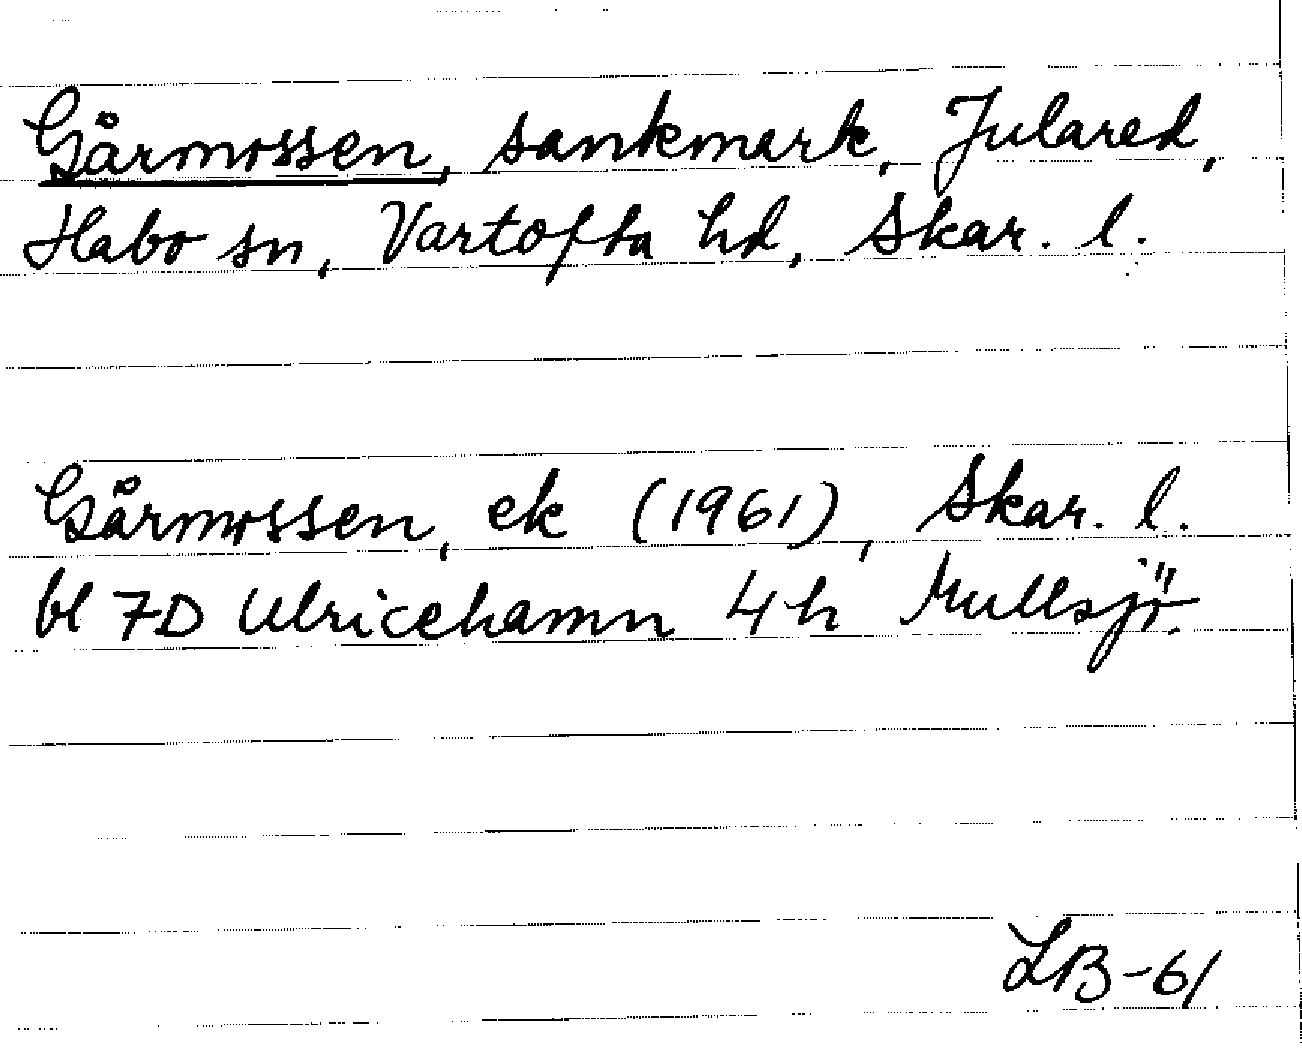 Gårmossen, sankmark, Julared,
Habo sn, Vartofta hd, Skar. l.
Gårmossen, ek (1961), Skar. l.
bl 7D Ulricehamn 4h Mullsjö.
LB-61